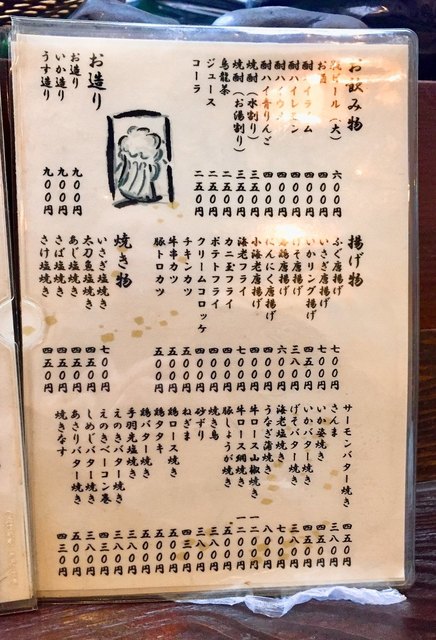 お飲み物
瓶ビール(大) 六〇〇円
お酒 四〇〇円
酎ハイライム 四〇〇円
酎ハイレモン 四〇〇円
酎ハイ 四〇〇円
酎ハイ青りんご 四〇〇円
焼酎(水割り) 三五〇円
焼酎(お湯割り) 三五〇円
烏龍茶 二五〇円
ジュース 二五〇円
コーラ 二五〇円
お造り
お造り 九〇〇円
いか造り 九〇〇円
うす造り 九〇〇円
揚げ物
ふぐ唐揚げ 七〇〇円
いさぎ唐揚げ 七〇〇円
いかリング唐揚げ 五〇〇円
げそ唐揚げ 三八〇円
若鶏唐揚げ 六〇〇円
にんにく唐揚げ 四〇〇円
小海老唐揚げ
海老フライ
カニ玉フライ
ポテトフライ 四〇〇円
クリームコロッケ
チキンカツ 五〇〇円
牛串カツ 五〇〇円
豚トロカツ 五〇〇円
焼き物
いさぎ塩焼き 七〇〇円
太刀魚塩焼き 四五〇円
あじ塩焼き 四五〇円
さば塩焼き 四五〇円
さけ塩焼き 四五〇円
サーモンバター焼き 四五〇円
さんま 三八〇円
いか姿焼き 四五〇円
いかバター焼き 四五〇円
げそバター焼き 三八〇円
海老塩焼き 七〇〇円
うなぎ蒲焼き
牛ロース山椒焼き 一二〇〇円
牛ロース網焼き 一二〇〇円
豚しょうが焼き 五〇〇円
焼き鳥 三八〇円
砂ずり 三八〇円
ねぎま 四三〇円
鶏ロース焼き 五〇〇円
鶏タタキ 五〇〇円
鶏バター焼き 五〇〇円
手羽先塩焼き
えのきバター焼き 三八〇円
えのきベーコン巻 四三〇円
しめじバター焼き
あさりバター焼き 五〇〇円
焼きなす 四三〇円